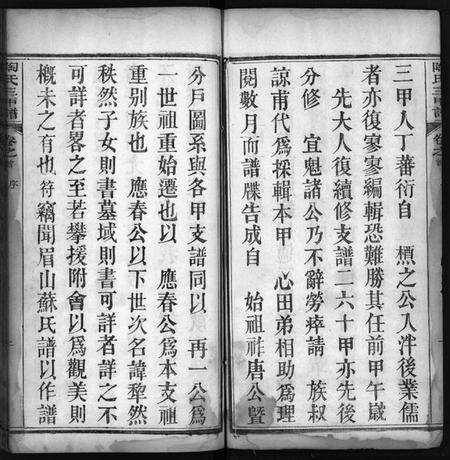 三甲人丁蕃衍自　標之公入泮後業儒
者亦復寥寥編輯恐難勝其任前甲午歲
先大人復續修支譜二六十甲亦先後
分修　宜魁諸公乃不辭勞瘁請　族叔
諒甫代為採輯本甲　心田弟相助為理
閱數月而譜牒告成自　始祖祚唐公暨
分戶圖系與各甲支譜同以　再一公為
一世祖重始遷也以　應春公為本支祖
重别族也　應春公以下世次名諱犂然
秩然子女則書墓域則書可詳者詳之不
可詳者畧之至若攀援附會以為觀美則
概未之有也符竊聞眉山蘇氏譜以作譜
陶氏三甲譜
卷之首
序